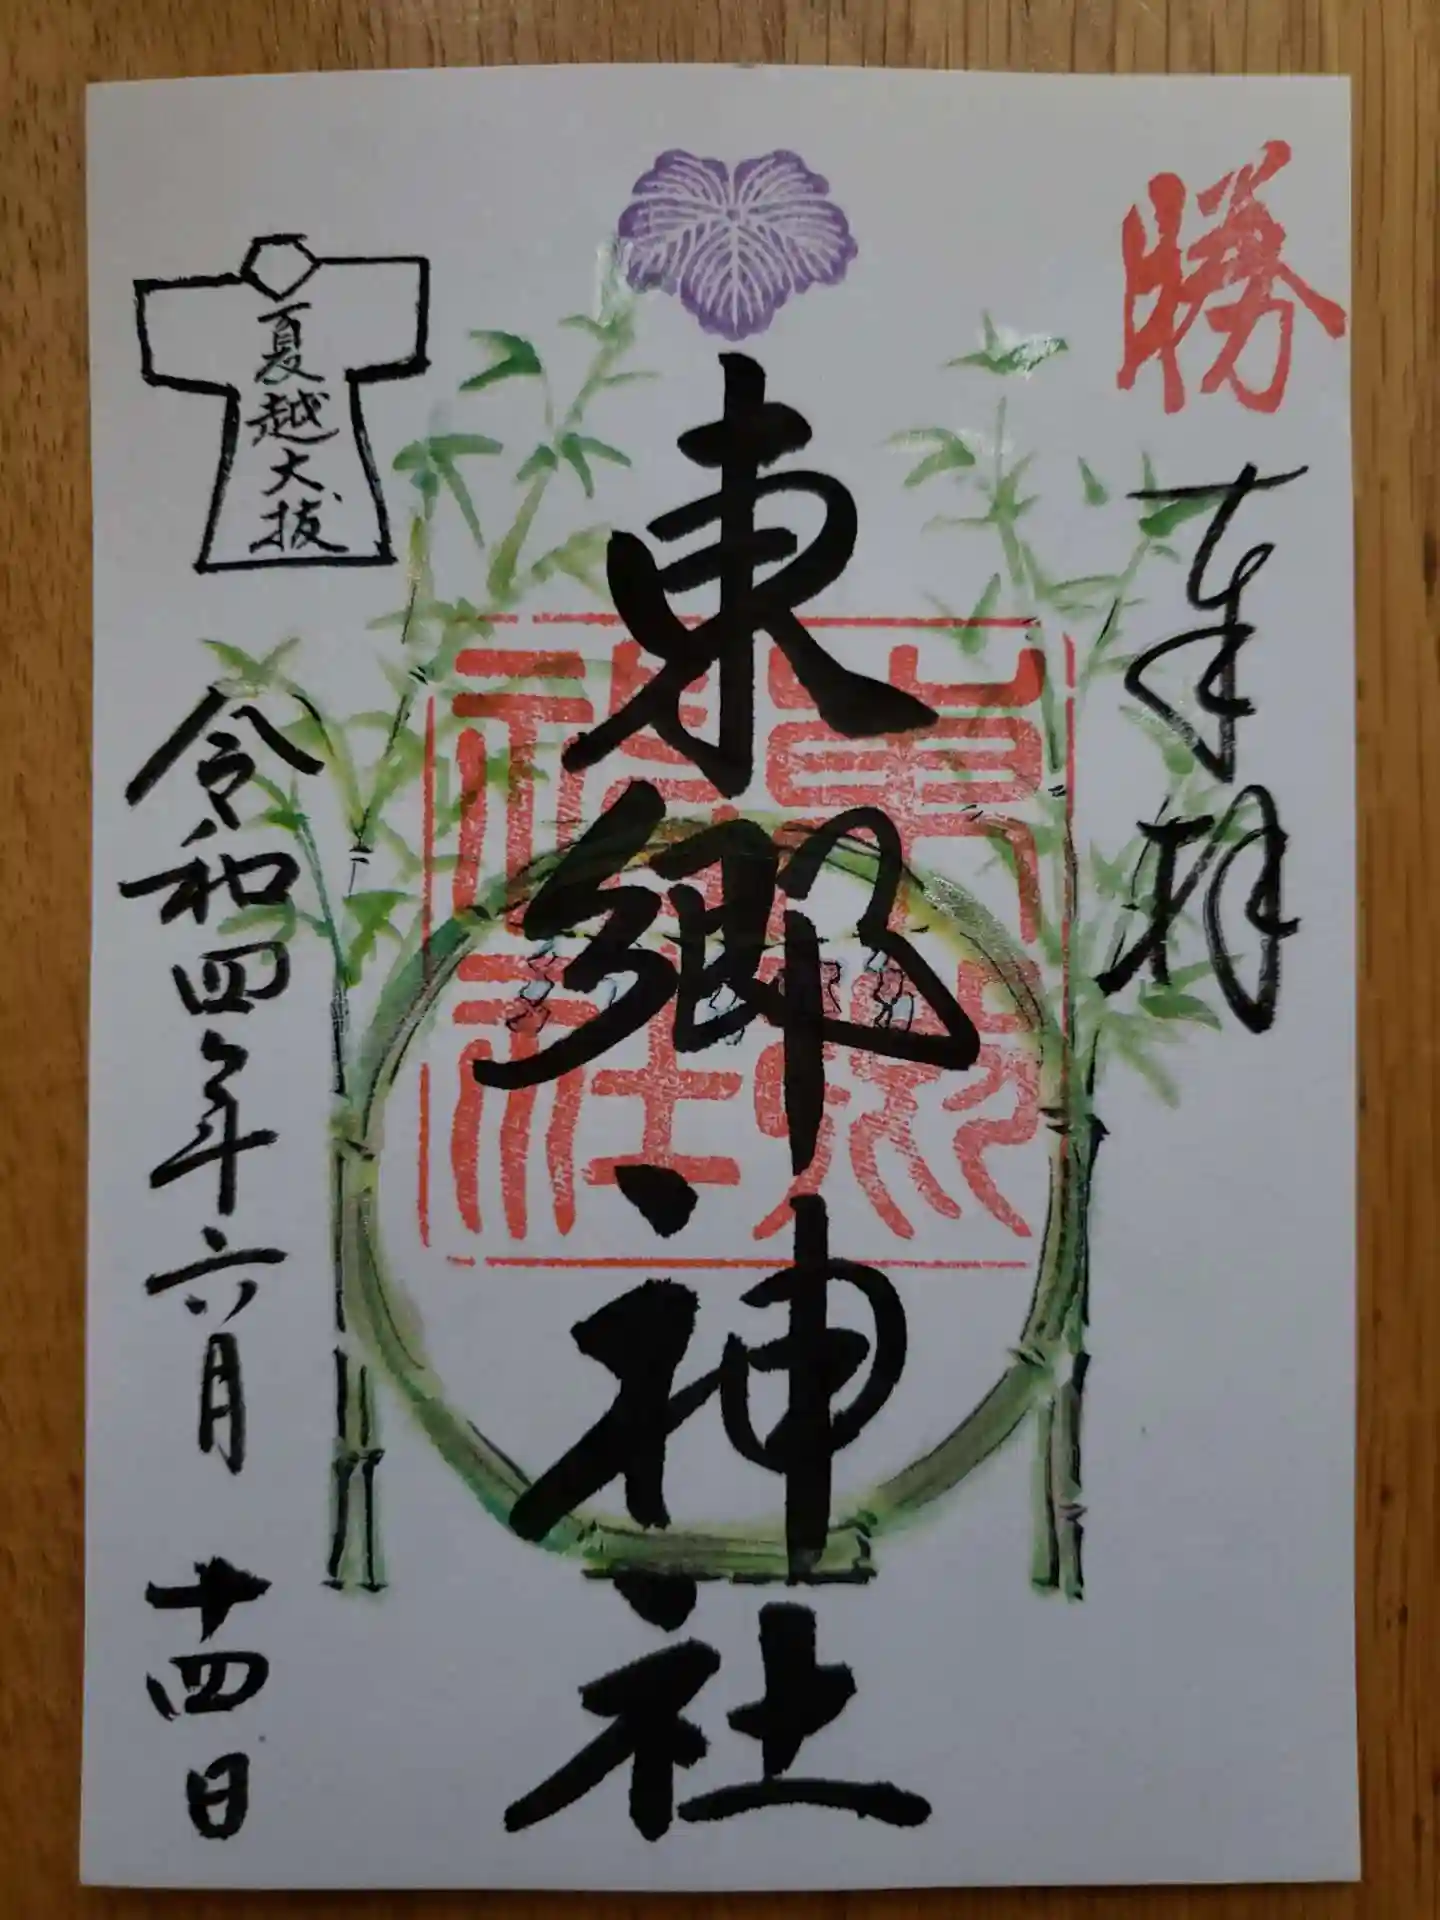 勝
奉拝
東郷神社
東郷神社
夏越大祓
令和四年六月十四日